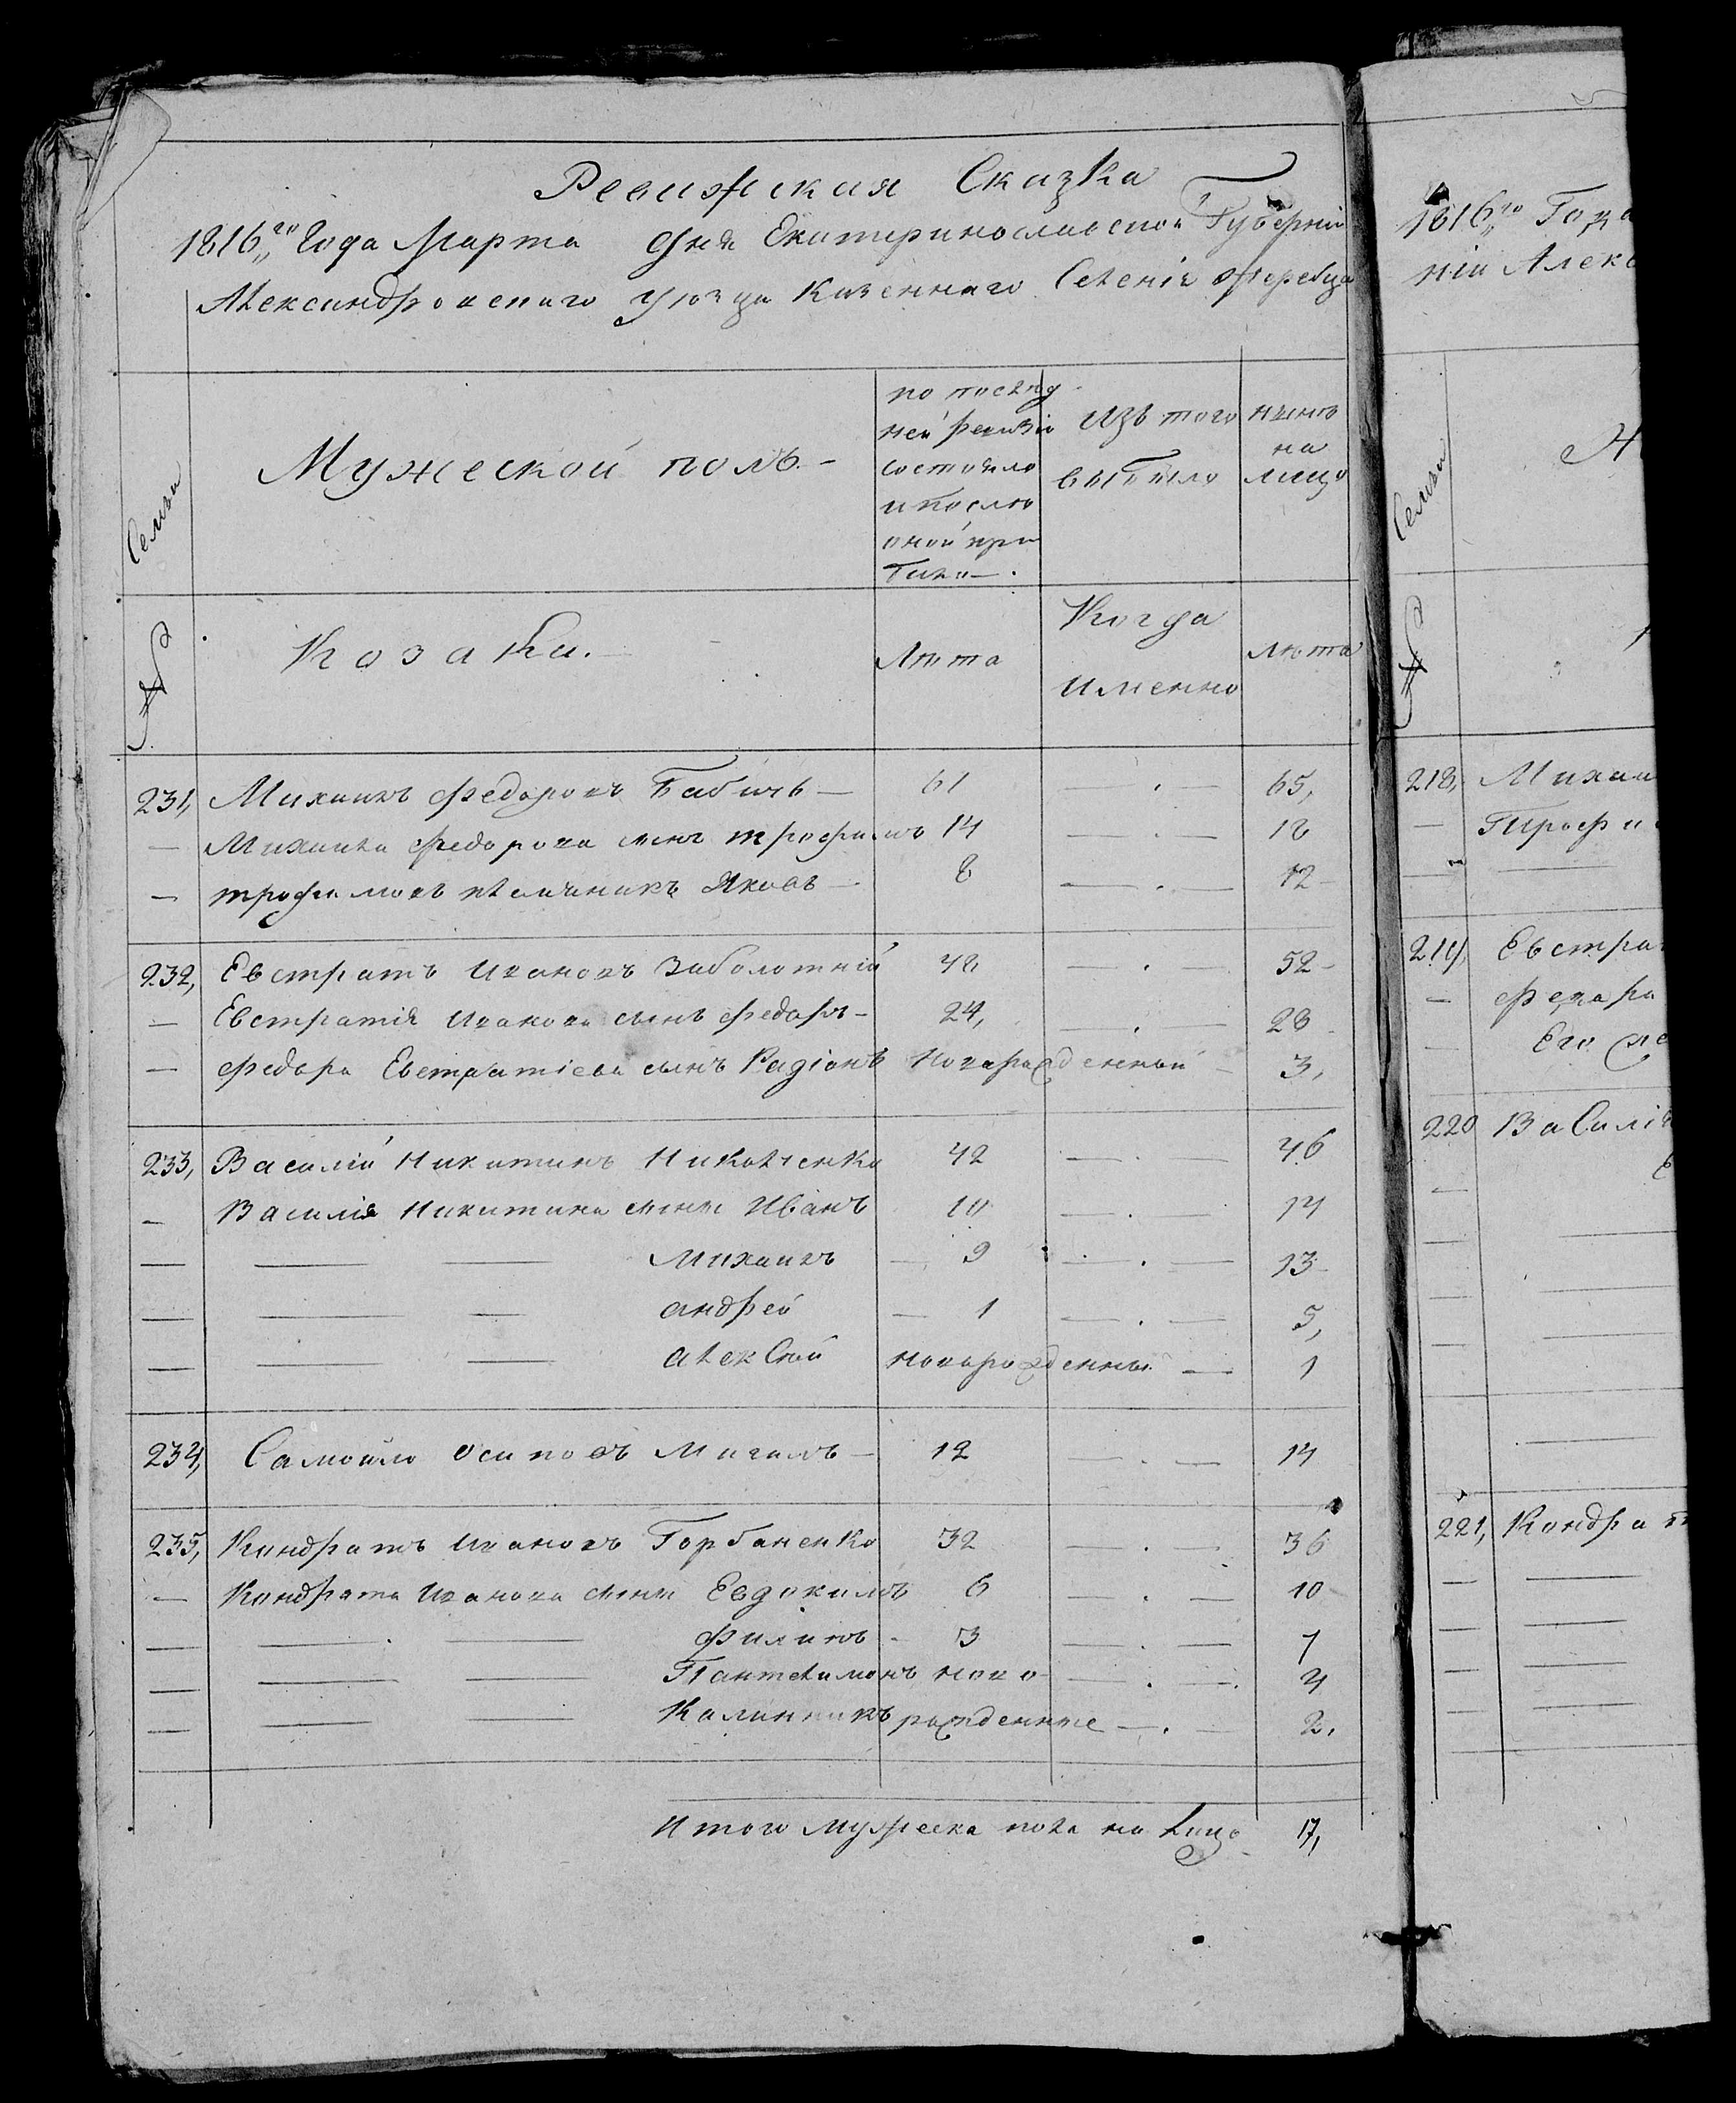 Ревижская Сказка
1816,,го Года Марта дня Екатеринославской Губерніи
Александровскаго уюзда Казеннаго Селенія Жеребца
Семьи
Мужеской полъ.-
по послюд
ней ревизіи
состояло
и послю
оной при
было.
Изъ того
выбыло
ныню
на
лицо
№
Козаки.
Люта
Когда
именно
люта
231, Михаилъ Федоровъ Бабичь — 61 — . — 65,
— Михаила Федорова сынъ трофимъ 14 — . — 18
— трофимовъ племяникъ Яковъ — 8 — . — 12
232, Евстратъ Ивановъ Заболотній 48 — . — 52
— Евстратія Иванова сынъ Федоръ - 24, — . — 28
— Федора Евстратіева сынъ Радіонъ Новорожденный 3,
233, Василій Никитинъ Николченко 42 — . — 46
— Василія Никитина сыны Иванъ 10 — . — 14
— — — Михаилъ — 9 — . — 13
— — — андрей — 1 — . — 5,
— — — алексюй новорожденный — 1
234, Самойло Осиповъ Мигаль — 12 — . — 14
235, Кондратъ Ивановъ Горбаненко 32 — . — 36
— Кондрата Иванова сыны Евдокимъ 6 — . — 10
— — — Филипъ - 3 — . — 7
— — — Пантелимонъ ново — . — 4
— — — Калинникъ рожденные — . — 2,
Итого мужеска пола на лицо 17,
1816,,го Года
ніи Алекс
Семьи
№
218, Михаи
— Трофи
— —
219, Евстра
— Федора
— Его
220 Василі
—
— —
— —
— —
—
221, Кондрат
— —
— —
— —
— —